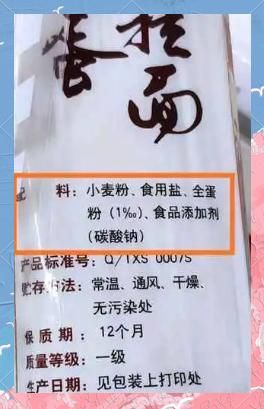 蛋拉面
配 料：小麦粉、食用盐、全蛋
粉（1‰）、食品添加剂
（碳酸钠）
产品标准号：Q/TXS 0007S
贮存方法：常温、通风、干燥、
无污染处
保质期：12个月
质量等级：一级
生产日期：见包装上打印处